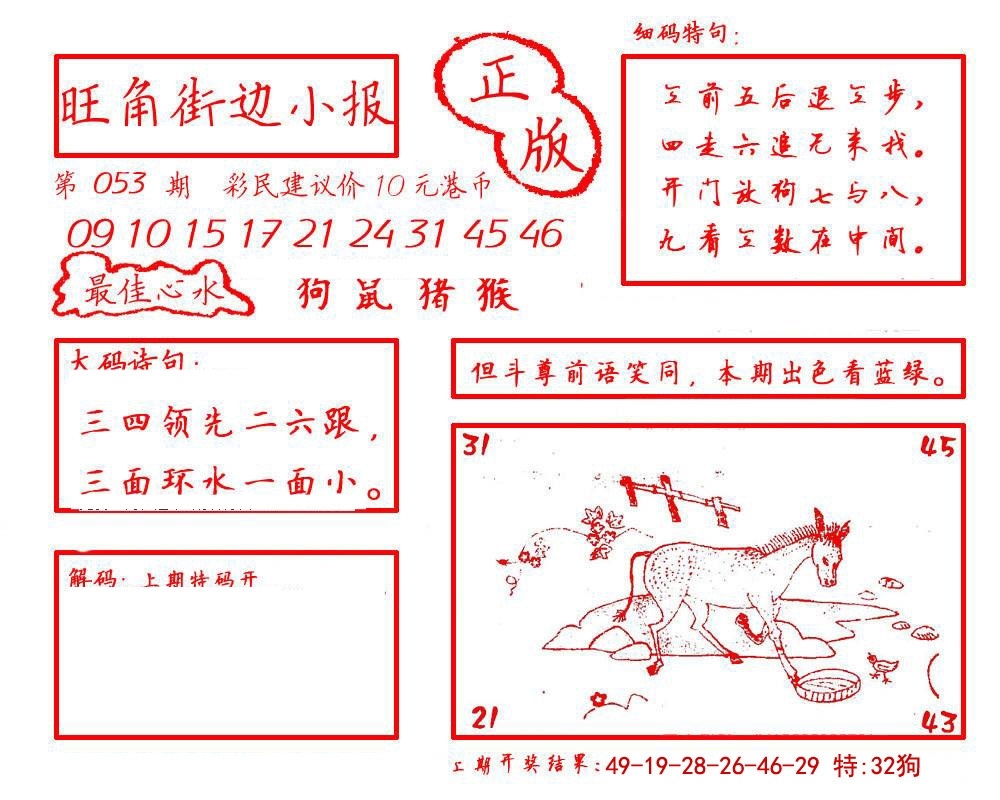 旺角街边小报
正
版
第 053 期 彩民建议价 10 元港币
09 10 15 17 21 24 31 45 46
最佳心水 狗 鼠 猪 猴
细码特句:
三前五后退三步,
四走六追无来找。
开门放狗七与八,
九看三数在中间。
大码诗句·
三四领先二六跟,
三面环水一面小。
但斗尊前语笑同,本期出色看蓝绿。
解码·上期特码开
31 45
21 43
上期开奖结果:49-19-28-26-46-29 特:32狗